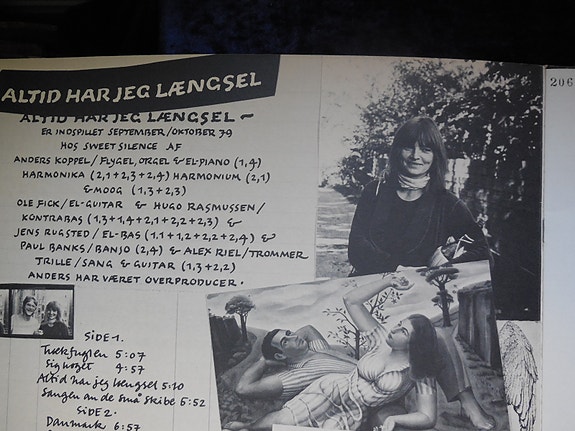 ALTID HAR JEG LÆNGSEL
ALTID HAR JEG LÆNGSEL ~
ER INDSPILLET SEPTEMBER/OKTOBER 79
HOS SWEET SILENCE AF
ANDERS KOPPEL/FLYGEL, ORGEL & EL-PIANO (1,4)
HARMONIKA (2,1+2,3+2,4) HARMONIUM (2,1)
& MOOG (1,3+2,3)
OLE FICK/EL-GUITAR & HUGO RASMUSSEN/
KONTRABAS (1,3+1,4+2,1+2,2+2,3) &
JENS RUGSTED/EL-BAS (1,1+1,2+2,2+2,4) &
PAUL BANKS/BANJO (2,4) & ALEX RIEL/TROMMER
TRILLE/SANG & GUITAR (1,3+2,2)
ANDERS HAR VÆRET OVERPRODUCER.
SIDE 1.
Trækfuglen 5:07
Sig noget 4:57
Altid har jeg længsel 5:10
Sangen om de små skibe 5:52
SIDE 2.
Danmark 6:57
206